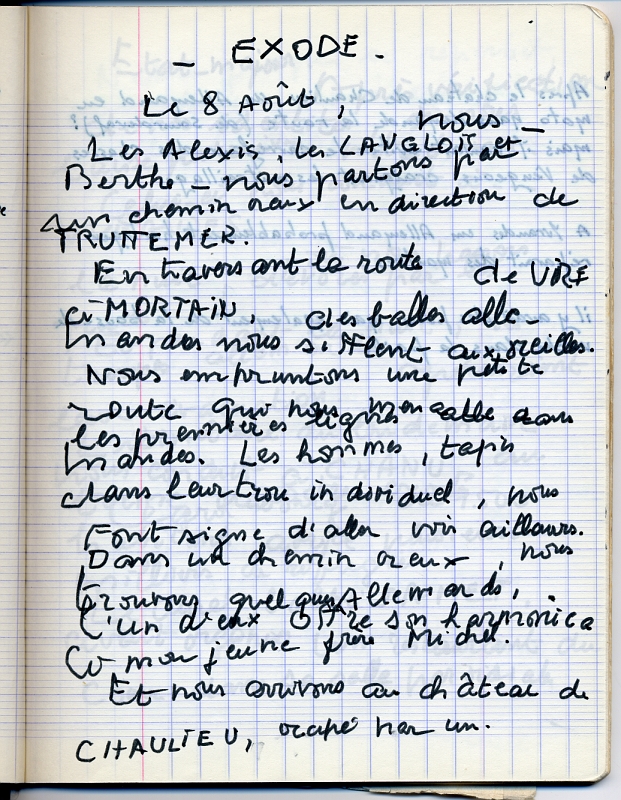 — EXODE.
Le 8 Août,
nous —
Les Alexis, les LANGLOIS et
Berthe — nous partons par
un chemin creux en direction de
TRUTTEMER.
En traversant la route de VIRE
à MORTAIN, des balles alle-
mandes nous sifflent aux oreilles.
Nous empruntons une petite
route qui nous mène dans
les premières lignes alle-
mandes. Les hommes, tapis
dans leur trou individuel, nous
Font signe d'aller voir ailleurs.
Dans un chemin creux, nous
trouvons quelques Allemands,
l'un d'eux offre son harmonica
à mon jeune frère Michel.
Et nous arrivons au château de
CHAULIEU, occupé par un.